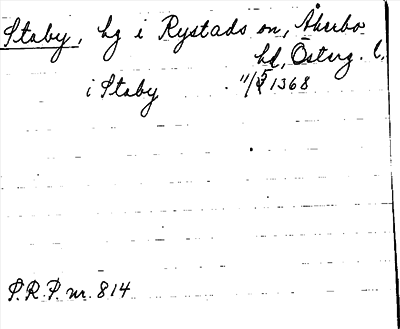 Staby, hg i Rystads sn, Åkerbo
hd, Österg. l.
i Staby 11/5 1368
S.R.P. nr. 814